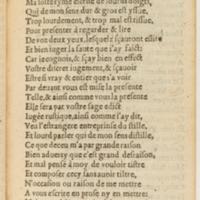 Ma lourde ryme tienne de lourds doigts,
Qui de mon sens dur & gros est yssue,
Trop lourdement, & trop mal est tissue,
Pour presenter à regarder & lire
De voz deux yeux, lesquelz sçauront eslire
Et bien iuger la faute que i'ay faict:
Car ie congnois, & sçay bien en effect
Vostre discret iugement, & sçauoir
Estre si vray & entier que s'a voir
Par deuant vous est mise la presente
Telle, & ainsi comme vous la presente
Elle sera par vostre sage edict
Iugée rustique, ainsi comme i'ay dit,
Veu l'estrangere entreprinse du stille,
Et lourd parler qui de mon sens distille,
Ce que deceu m'a par grande raison
Bien aduerty que c'est grand desraison,
Et mal pensé à moy de vouloir tistre
Et composer cecy sans auoir tiltre,
N'occasion ou raison de me mettre
A vous escrire en prose ny en mettre: